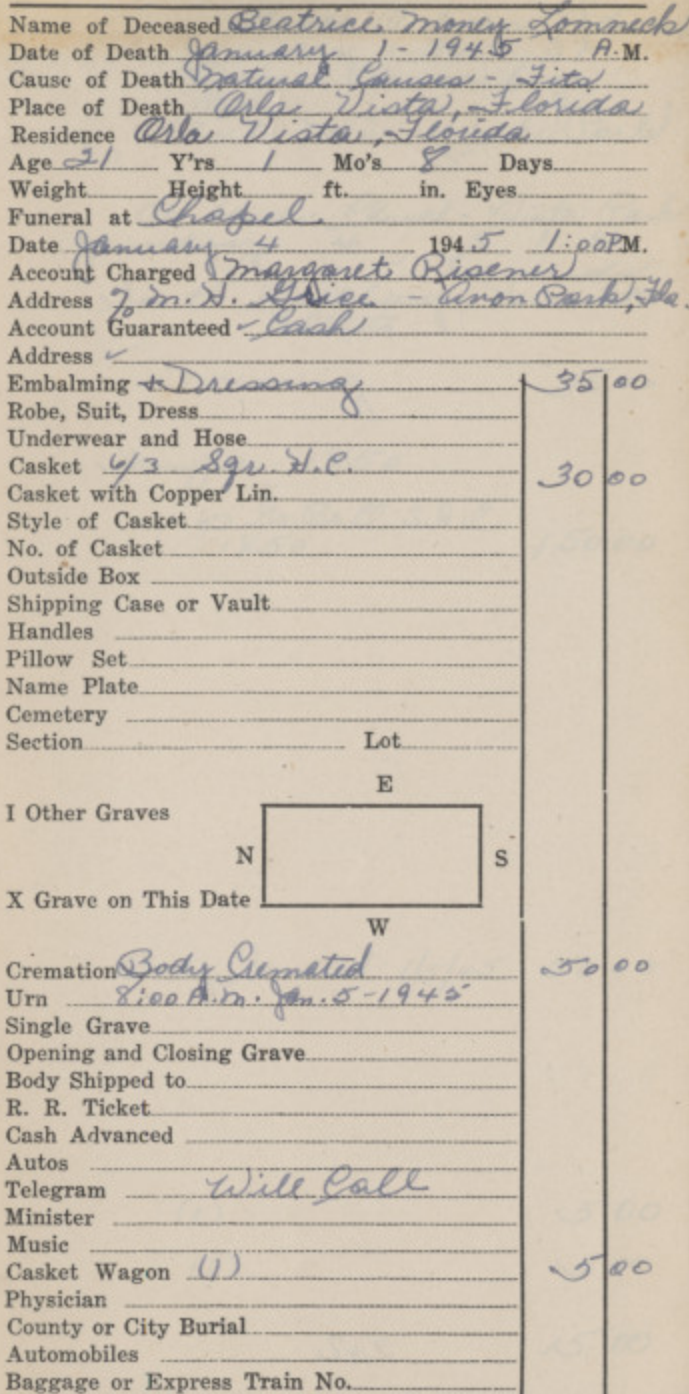 Name of Deceased Beatrice Money Lomneck
Date of Death January 1-1945 A.M.
Cause of Death Natural Causes - Fits
Place of Death Orla Vista, Florida
Residence Orlo Vista, Florida
Age 21 Y'rs 1 Mo's 8 Days
Weight Height ft. in. Eyes
Funeral at Chapel
Date January 4 1945 1:00 PM.
Account Charged Margaret Risener
Address % M. H. Grice - Avon Park, Fla.
Account Guaranteed ✓ Cash
Address ✓
Embalming + Dressing 35 00
Robe, Suit, Dress
Underwear and Hose
Casket 6/3 Sqr. H.C. 30 00
Casket with Copper Lin.
Style of Casket
No. of Casket
Outside Box
Shipping Case or Vault
Handles
Pillow Set
Name Plate
Cemetery
Section Lot
E
I Other Graves
N S
X Grave on This Date
W
Cremation Body Cremated 50 00
Urn 8:00 A.M. Jan. 5-1945
Single Grave
Opening and Closing Grave
Body Shipped to
R. R. Ticket
Cash Advanced
Autos
Telegram Will Call
Minister
Music
Casket Wagon (1) 5 00
Physician
County or City Burial
Automobiles
Baggage or Express Train No.